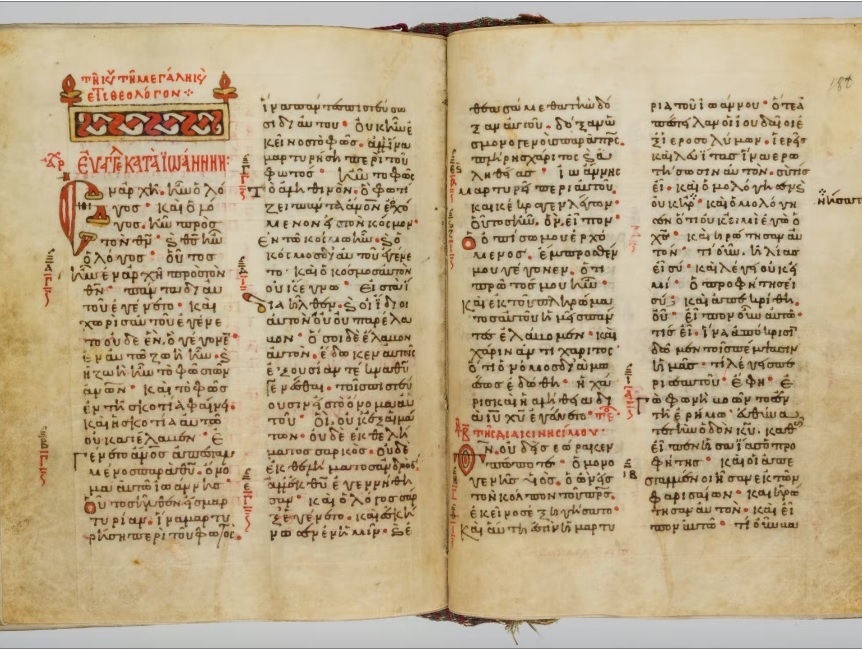 ΕΥΑ ΤΕ ΚΑΤΑ ΙΩΑΝΝΗΝ:
Ἐν ἀρχῇ ἦν ὁ λό
γος · καὶ ὁ λό
γος. ἦν πρὸς
τὸν θν · κ θς ἦν
ὁ λόγος · οὗτος
ἦν ἐν ἀρχῇ πρὸς τὸν
θν · πάντα δι αὐ
τοῦ ἐγένετο · καὶ
χωρὶς αὐτοῦ ἐγένε
το οὐδὲ ἕν, ὃ γέγονεν
ἐν αὐτῷ ζωὴ ἦν · κ
ἡ ζωὴ ἦν τὸ φῶς τῶν
ἀνων · καὶ τὸ φῶς
ἐν τῇ σκοτία φαίνει
καὶ ἡ σκοτία αὐτὸ
οὐ κατέλαβεν · ἐ
γένετο ανος ἀπεσταλ
μένος παρὰ θυ · ὄνο
μα αὐτῷ ἰωάννης ·
οὗτος ἦλθεν εἰς μαρ
τυρίαν. ἵνα μαρτυ
ρήσῃ περὶ τοῦ φωτός.
ἵνα πάντες πιστεύσω
σι δι αὐτοῦ · οὐκ ἦν ἐ
κεῖνος τὸ φῶς. ἀλλ ἵνα
μαρτυρήσῃ περὶ τοῦ
φωτός · ἦν τὸ φῶς
τὸ ἀληθινόν · ὃ φωτί
ζει πάντα ανον ἐρχό
μενον εἰς τὸν κόσμον ·
ἐν τῷ κόσμῳ ἦν · κ ὁ
κόσμος δι αὐτοῦ ἐγένε
το · καὶ ὁ κόσμος αὐτὸν
οὐκ ἔγνω · εἰς τὰ ἴ
δια ἦλθεν · κ οἱ ἴδιοι
αὐτὸν οὐ παρέλα
βον · ὅσοι δὲ ἔλαβον
αὐτόν · ἔδωκεν αὐτοῖς
ἐξουσίαν τέκνα θυ
γενέσθαι · τοῖς πιστεύ
ουσιν εἰς τὸ ὄνομα αὐ
τοῦ · οἳ οὐκ ἐξ αἱμά
των · οὐδὲ ἐκ θελή
ματος σαρκός · οὐδὲ
ἐκ θελήματος ἀνδρός
ἀλλ ἐκ θυ ἐγεννήθη
σαν · καὶ ὁ λόγος σαρ
ξ ἐγένετο · καὶ ἐσκή
νωσεν ἐν ἡμῖν · κ ἐ
θεασάμεθα τὴν δό
ξαν αὐτοῦ · δόξαν ὡ
ς μονογενοῦς παρὰ πρς
πλήρης χάριτος κ ἀ
ληθείας · ἰωάννης
μαρτυρεῖ περὶ αὐτοῦ
καὶ κέκραγεν λέγων ·
οὗτος ἦν. ὃν εἶπον
ὁ ὀπίσω μου ἐρχό
μενος. ἔμπροσθέν
μου γέγονεν. ὅτι
πρῶτός μου ἦν ·
καὶ ἐκ τοῦ πληρώμα
τος αὐτοῦ ἡμεῖς πάν
τες ἐλάβομεν · καὶ
χάριν ἀντὶ χάριτος ·
ὅτι ὁ νόμος διὰ μω
σέως ἐδόθη · ἡ χά
ρις καὶ ἡ ἀλήθεια δι
ὰ ιυ χυ ἐγένετο ·
τῇ β τῆς διακινησίμου
θν οὐδεὶς ἑώρακεν
πώποτε · ὁ μονο
γενὴς υἱός. ὁ ὢν εἰς
τὸν κόλπον τοῦ πρς.
ἐκεῖνος ἐξηγήσατο ·
καὶ αὕτη ἐστὶν ἡ μαρτυ
ρία τοῦ ἰωάννου · ὅτε ἀ
πέστειλαν οἱ ἰουδαῖοι ἐ
ξ ἱεροσολύμων · ἱερεῖς
καὶ λευίτας ἵνα ἐρω
τήσωσιν αὐτόν · σὺ τίς
εἶ · καὶ ὡμολόγησεν κ
οὐκ ἠρν · καὶ ὡμολόγη
σεν ὅτι οὐκ εἰμὶ ἐγὼ ὁ
χς · καὶ ἠρώτησαν αὐ
τόν · τί οὖν. ἠλίας
εἶ σύ · καὶ λέγει οὐκ εἰ
μί · ὁ προφήτης εἶ
σύ; καὶ ἀπεκρίθη.
οὔ · εἶπον οὖν αὐτῷ
τίς εἶ · ἵνα ἀπόκρισι
δῶμεν τοῖς πέμψασιν
ἡμᾶς · τί λέγεις πε
ρὶ σεαυτοῦ · ἔφη · ἐ
γὼ φωνὴ βοῶντος ἐν
τῇ ἐρήμῳ · εὐθύνα
τε τὴν ὁδὸν κυ. καθὼς
εἶπεν ἠσαΐας ὁ προ
φήτης · καὶ οἱ ἀπε
σταλμένοι ἦσαν ἐκ τῶν
φαρισαίων · καὶ ἠρώ
τησαν αὐτόν · καὶ εἶ
πον αὐτῷ · τί οὖν βα